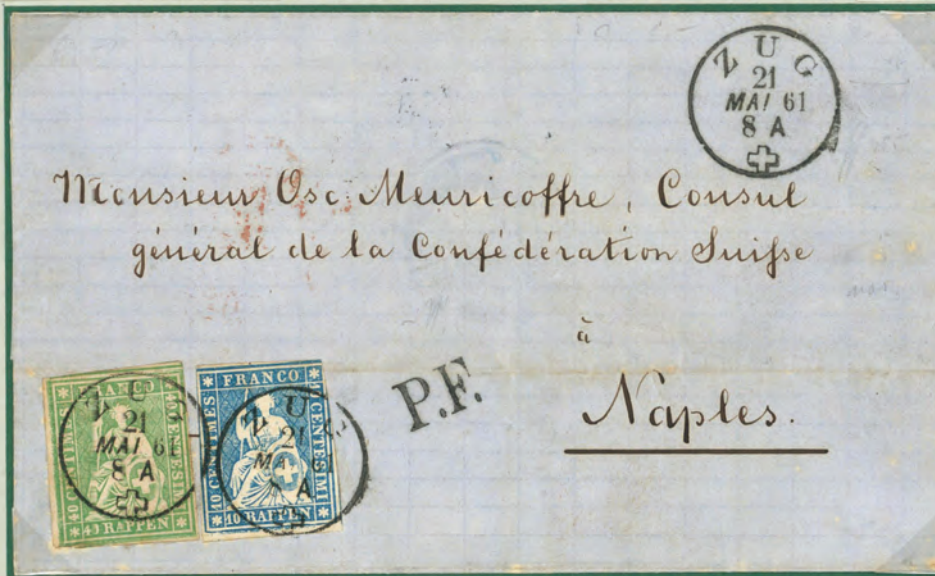 ZUG
21
MAI 61
8 A
Monsieur Osc. Meuricoffre, Consul
général de la Confédération Suisse
à
Naples.
P.F.
FRANCO
40 CENTIMES
40 CENTESIMI
40 RAPPEN
ZUG
21
MAI 61
8 A
FRANCO
10 CENTIMES
10 CENTESIMI
10 RAPPEN
ZUG
21
MA
A